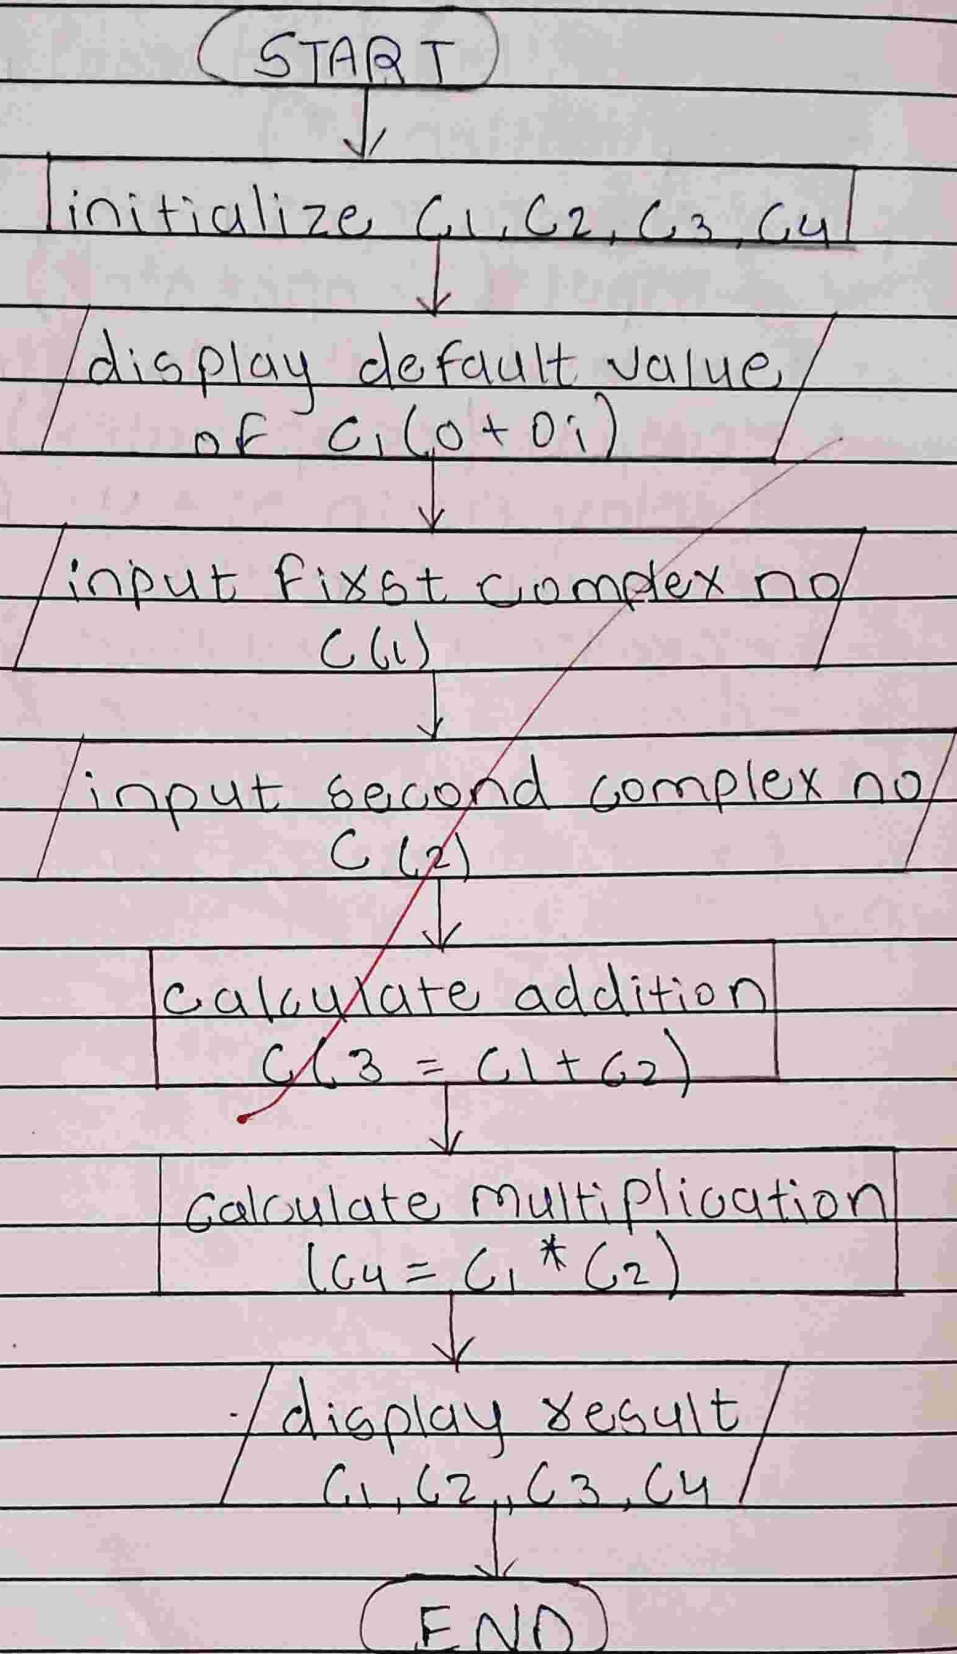 START
initialize C1, C2, C3, C4
display default value
of C1(0+0i)
input first complex no
C(1)
input second complex no
C(2)
calculate addition
C(3 = C1+C2)
calculate multiplication
(C4 = C1 * C2)
display result
C1, C2, C3, C4
END